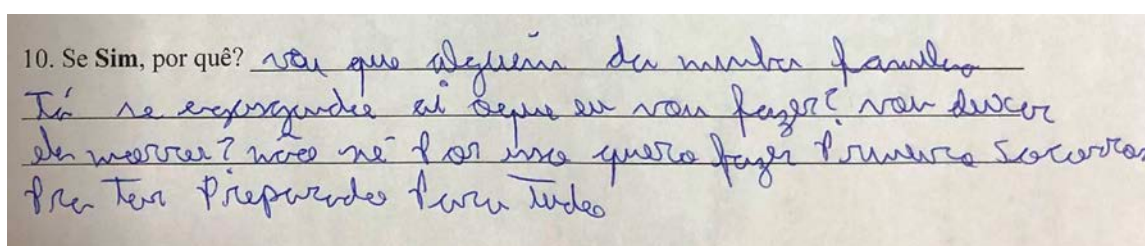 10. Se Sim, por quê? vai que alguém da minha familia
Tá se engasgando ai oque eu vou fazer? vou deixar
ele morrer? não né por isso quero fazer Primeiro Socorros
Pra ter Preparado Para Tudo